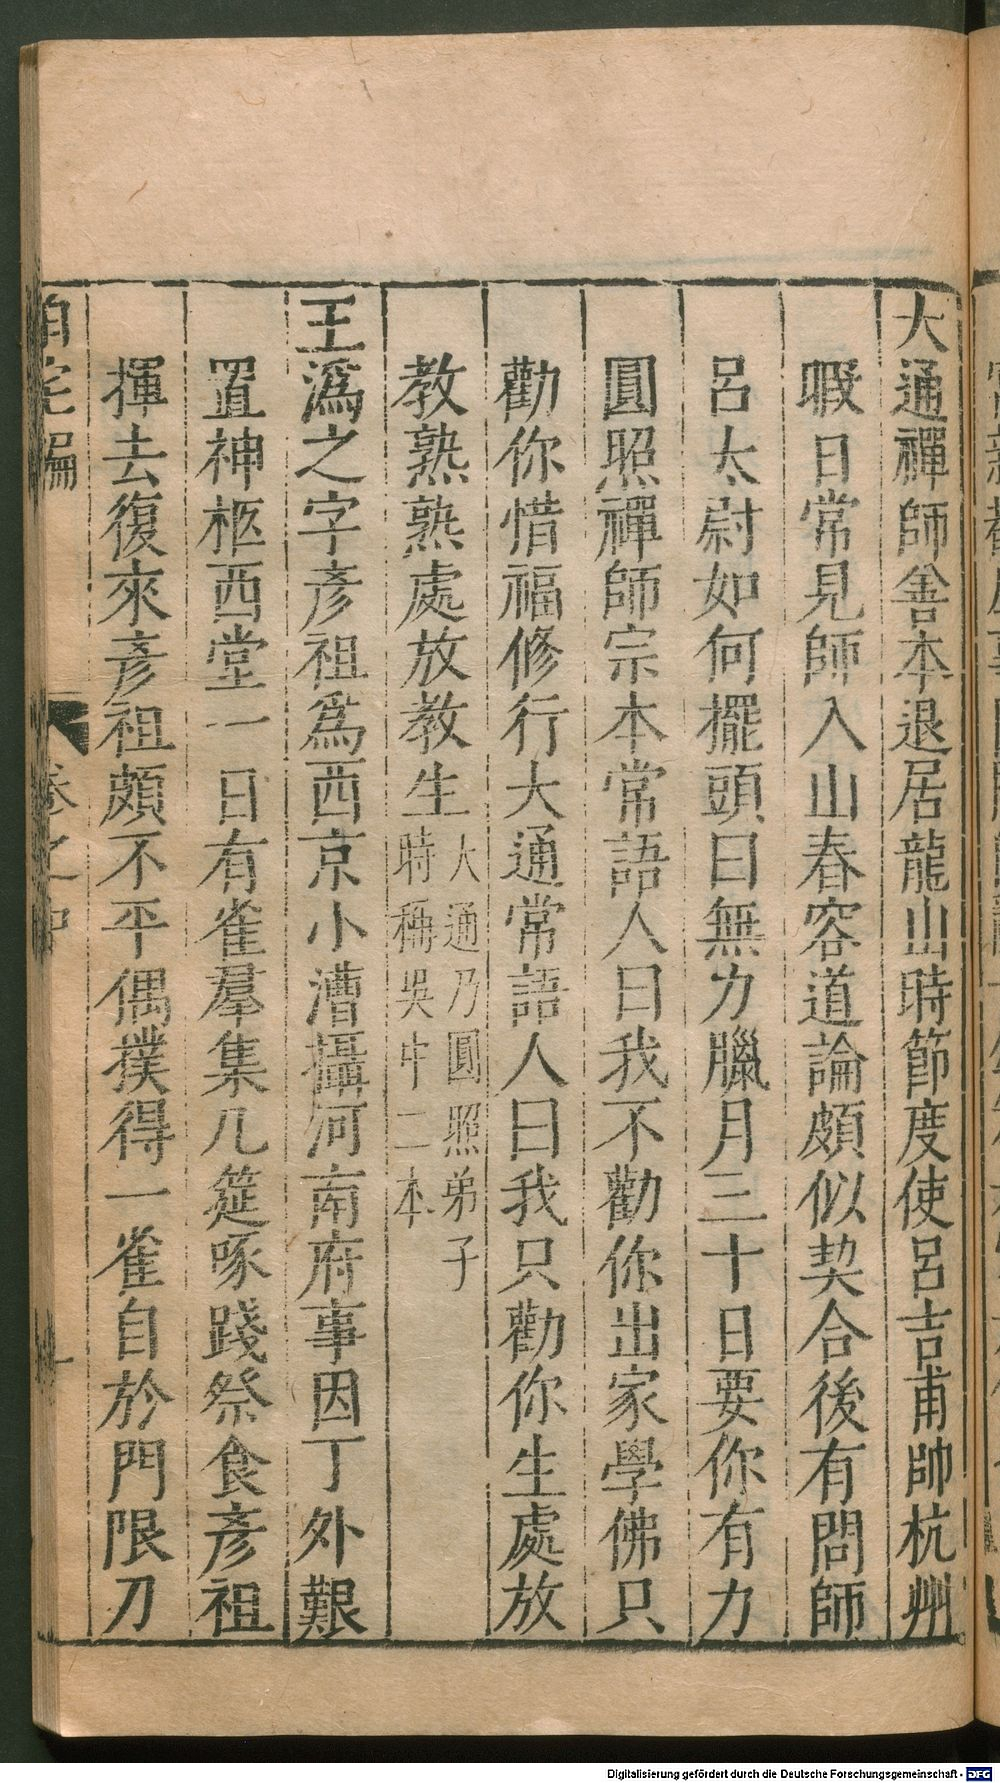 大通禪師善本退居龍山時節度使呂吉甫帥杭州
暇日常見師入山春容道論頗似契合後有問師
呂太尉如何擺頭曰無力臘月三十日要你有力
圓照禪師宗本常語人曰我不勸你出家學佛只
勸你惜福修行大通常語人曰我只勸你生處放
教熟熟處放教生
大通乃圓照弟子
時稱吳中二本
王溈之字彥祖為西京小漕攝河南府事因丁外艱
置神柩西堂一日有雀羣集几筵啄踐祭食彥祖
揮去復來彥祖頗不平偶撲得一雀自於門限刀
泊宅編
卷之中
Digitalisierung gefördert durch die Deutsche Forschungsgemeinschaft - DFG